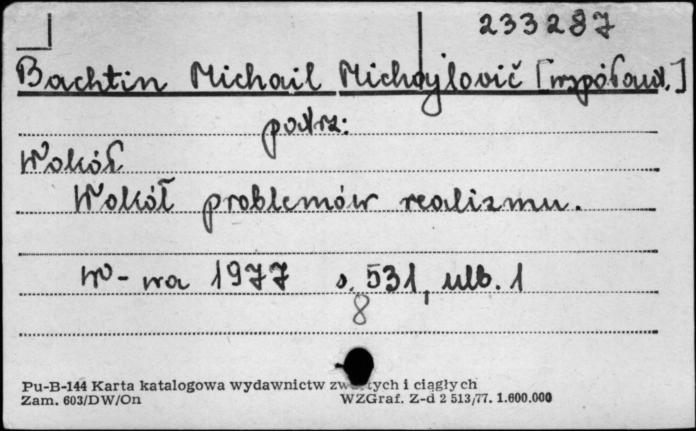 233287
Bachtin Michail Michajlovič [współaut.]
patrz:
Wokół
Wokół problemów realizmu.
W-wa 1977 s. 531, ulb. 1
8
Pu-B-144 Karta katalogowa wydawnictw zwartych i ciągłych
Zam. 603/DW/On WZGraf. Z-d 2 513/77. 1.600.000